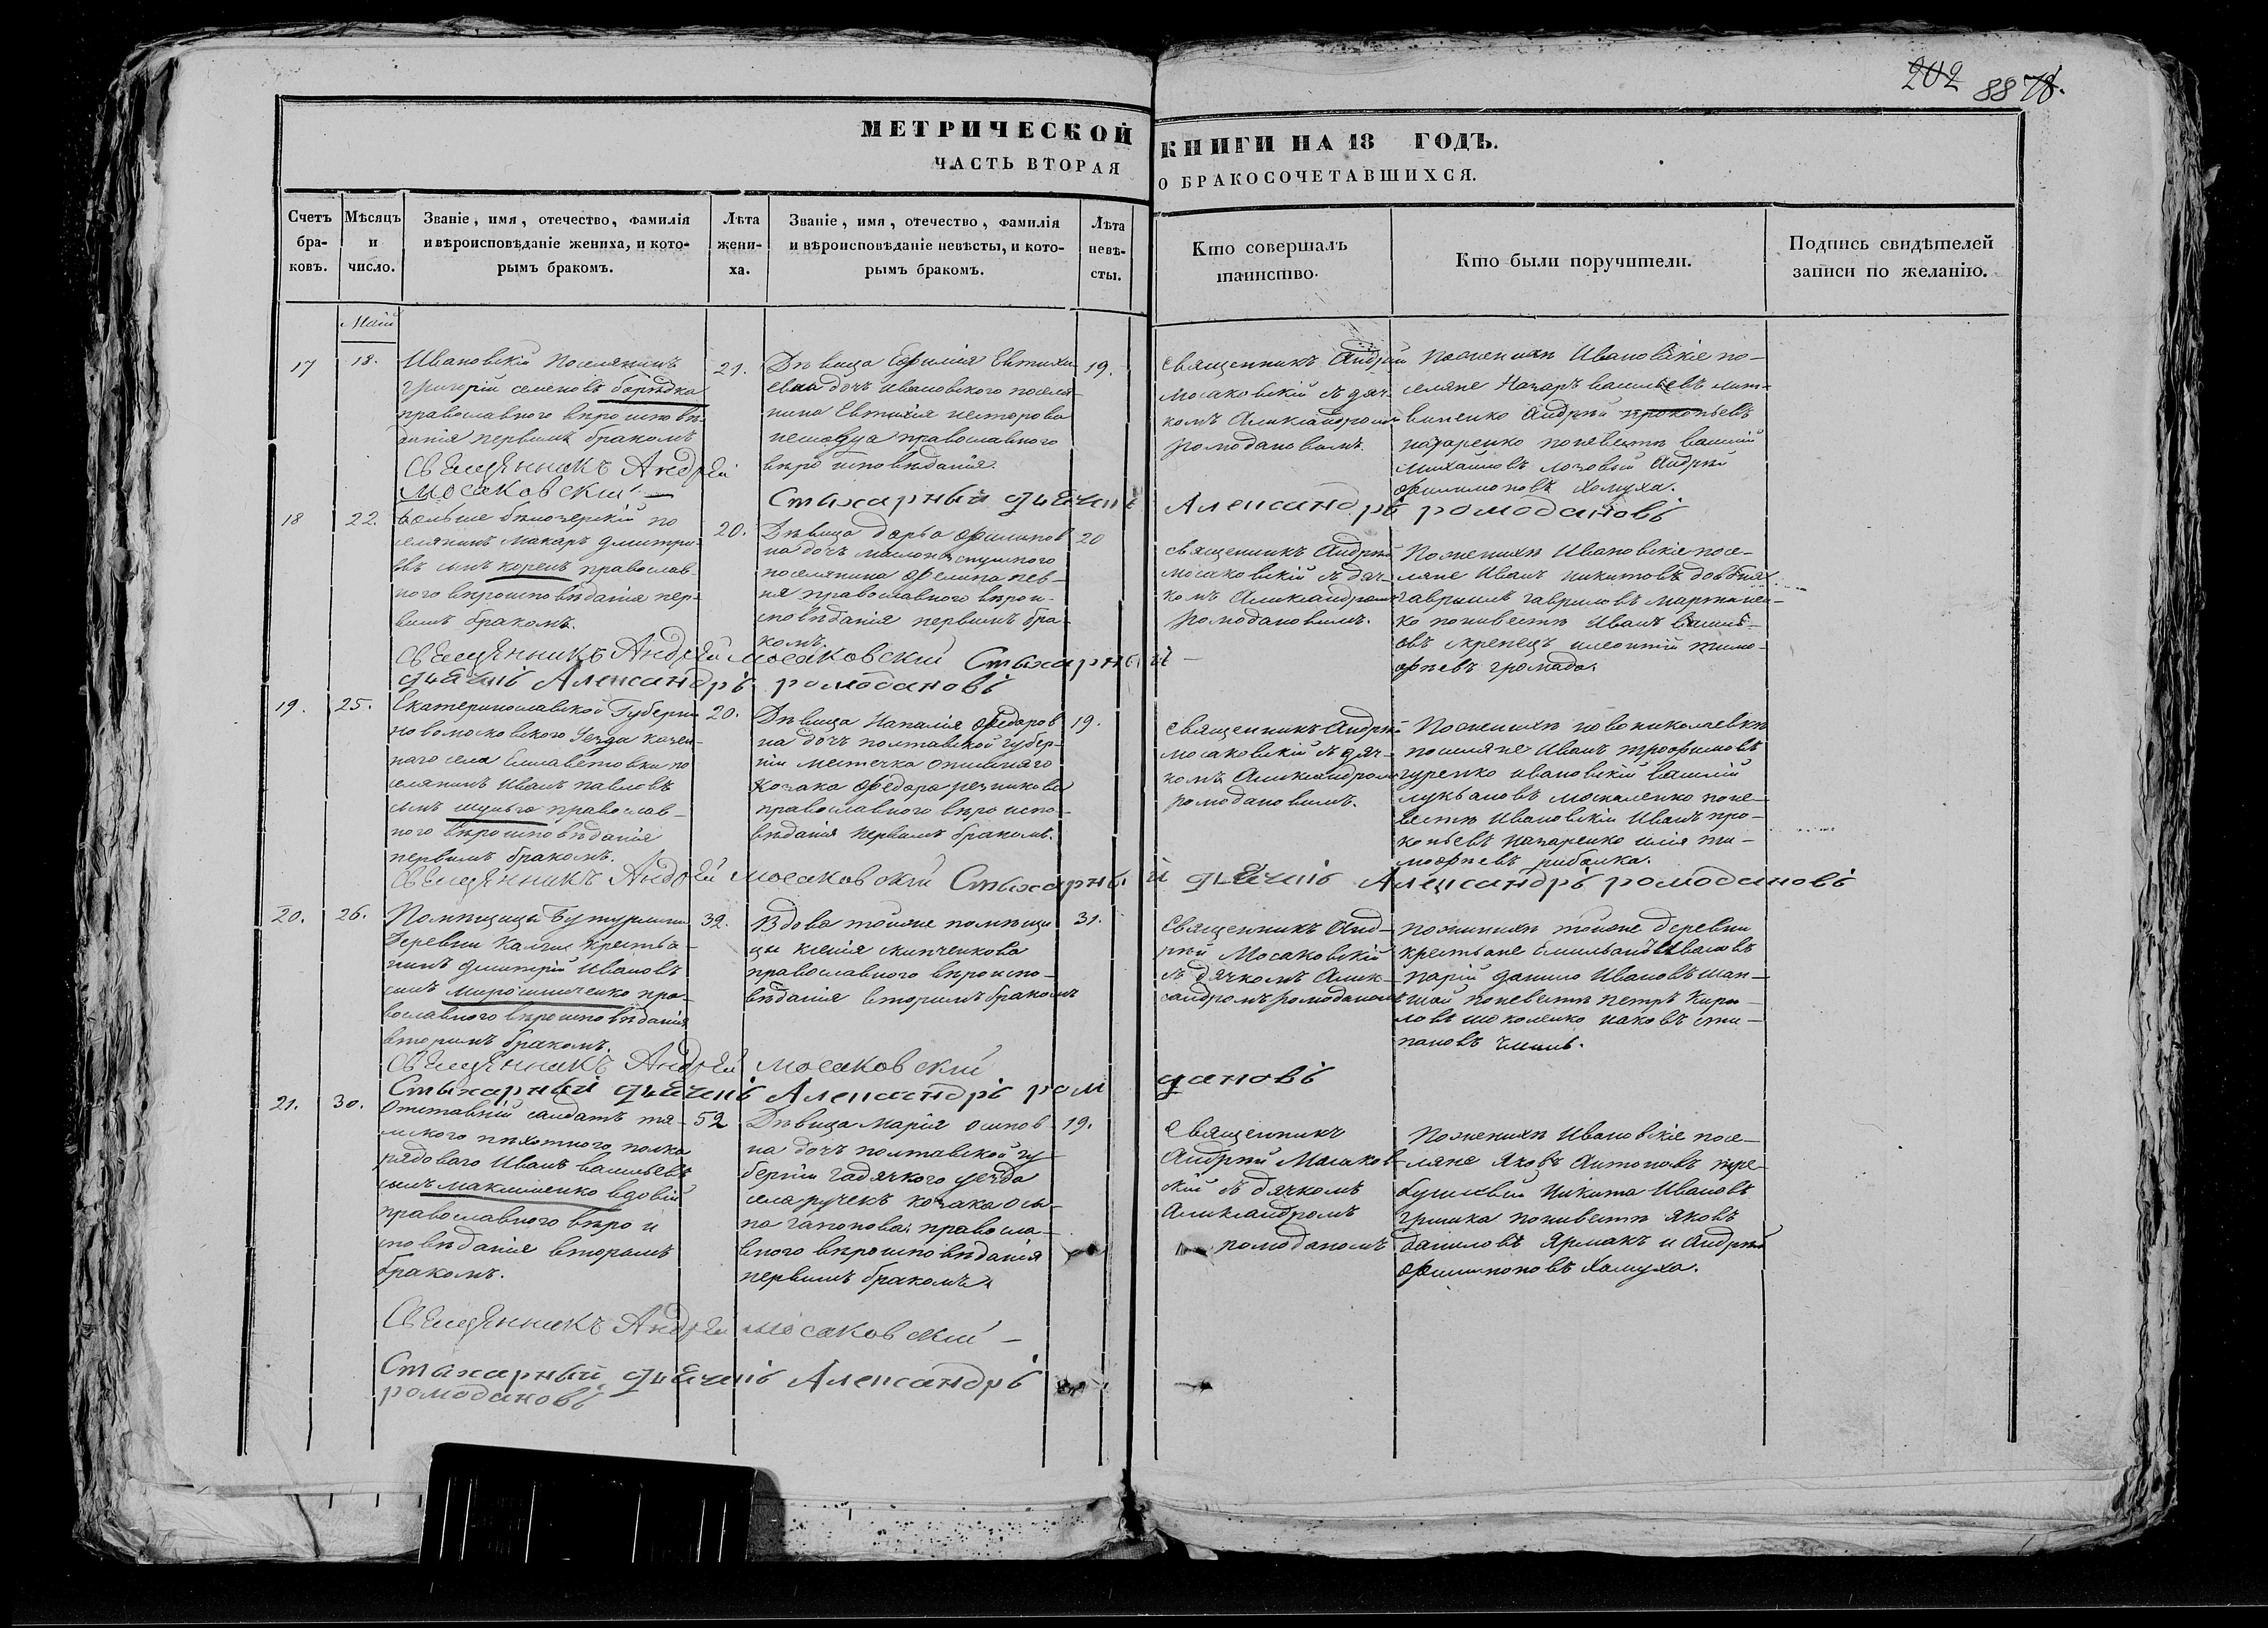 202 88 78.
МЕТРИЧЕСКОЙ КНИГИ НА 18 ГОДЪ.
ЧАСТЬ ВТОРАЯ О БРАКОСОЧЕТАВШИХСЯ.
Счетъ
бра-
ковъ.
Мѣсяцъ
и
число.
Званіе, имя, отечество, фамилія
и вѣроисповѣданіе жениха, и кото-
рымъ бракомъ.
Лѣта
жени-
ха.
Званіе, имя, отечество, фамилія
и вѣроисповѣданіе невѣсты, и кото-
рымъ бракомъ.
Лѣта
невѣ-
сты.
Кто совершалъ
таинство.
Кто были поручители.
Подпись свидѣтелей
записи по желанію.
Маій
17
18.
Ивановскій Поселянинъ
григорій семеновъ
православного вѣроисповѣ-
данія первымъ бракомъ
21.
Дѣвица Евфимія Евтихи
дочъ ивановского поселя-
нина Евтихія несторова
православного
вѣроисповѣданія.
19.
Священникъ Андрей
Мосаковскій съ дяч-
комъ Александромъ
Ромодановымъ.
Поженихѣ Ивановскіе по-
селяне Назаръ васильевъ лит-
виненко Андрѣй прокопьевъ
назаренко поневестѣ василій
михайловъ лозовый Андрѣй
филимоновъ Хомуха.
Священникъ Андрей
Мосаковскій
Стихарный дьячикъ Александръ ромодановъ
18
22.
поселянинъ Макаръ дмитрі-
евъ сынъ корень православ-
ного вѣроисповѣданія пер-
вымъ бракомъ.
20.
Дѣвица дарья филипов
на дочъ
поселянина филипа пев-
ня православного вѣрои-
сповѣданія первымъ бра-
комъ.
20
священникъ Андрѣй
мосаковскій съ дяч-
комъ Александромъ
Ромодановымъ.
Поженихѣ Ивановскіе посе-
ляне Иванъ никитовъ довбня
гаврыилъ гавриловъ мартынен-
ко поневестѣ Иванъ васил-
евъ леонтій тимо-
феевъ громада.
Священникъ Андрей Мосаковскій Стихарный
дьячикъ Александръ ромодановъ
19.
25.
Екатеринославской Губерни
новомосковского уезда казен-
наго села Елисаветовки по
селянинъ Иванъ павловъ
сынъ шульга православ-
ного вѣроисповѣданія
первымъ бракомъ.
20.
Дѣвица Наталія федоров
на дочъ полтавской губер-
ніи местечка опошняго
козака федора резникова
православного вѣроиспо-
вѣданія первымъ бракомъ.
19.
священникъ Андрѣй
мосаковскій съ дяч-
комъ Александромъ
ромодановымъ.
Поженихѣ новониколаевки
поселяне Иванъ трофимовъ
гуренко ивановскій василій
лукьановъ москаленко поне-
вестѣ Ивановскіи Иванъ про-
копьевъ назаренко илія ти-
мофеевъ рибалка.
Священникъ Андрей Мосаковскій Стихарный дьячикъ Александръ ромодановъ
20.
26.
Помѣщицы Бутурлиной
деревни крестья-
нинъ дмитрій Ивановъ
сынъ Мирошниченко пра-
вославного вѣроисповѣданія
вторымъ бракомъ.
32.
Вдова тойже помѣщи
цы ксенія скипченкова
православного вѣроиспо-
вѣданія вторимъ бракомъ
31.
Священникъ Анд-
рѣй Мосаковскій
съ дячкомъ Алек-
сандромъ ромодановимъ
поженихѣ тойже деревни
крестьяне Емильянъ Ивановъ
данило Ивановъ
поневестѣ петръ Кири-
ловъ шоколенко иаковъ сте-
пановъ
Священникъ Андрей Мосаковскій
Стихарный дьячикъ Александръ ромодановъ
21.
30.
Отставній салдатъ
пѣхотного полка
рядового Иванъ васильевъ
сынъ максименко вдовій
православного вѣрои
сповѣданія вторымъ
бракомъ.
52
Дѣвица Марія осипов
на дочъ полтавской гу
берніи гадячкого уезда
села ручекъ козака оси-
па гапонова, правосла-
вного вѣроисповѣданія
первымъ бракомъ
19.
Священникъ
Андрѣй Мосаков-
скій съ дячкомъ
Александромъ
ромоданомъ
Поженихѣ Ивановскіе посе-
ляне Яковъ Антоновъ
Никита Ивановъ
гришка поневестѣ Яковъ
даниловъ Ярмакъ и Андрѣй
филимоновъ Хомуха.
Священникъ Андрей Мосаковскій
Стихарный дьячикъ Александръ
ромодановъ